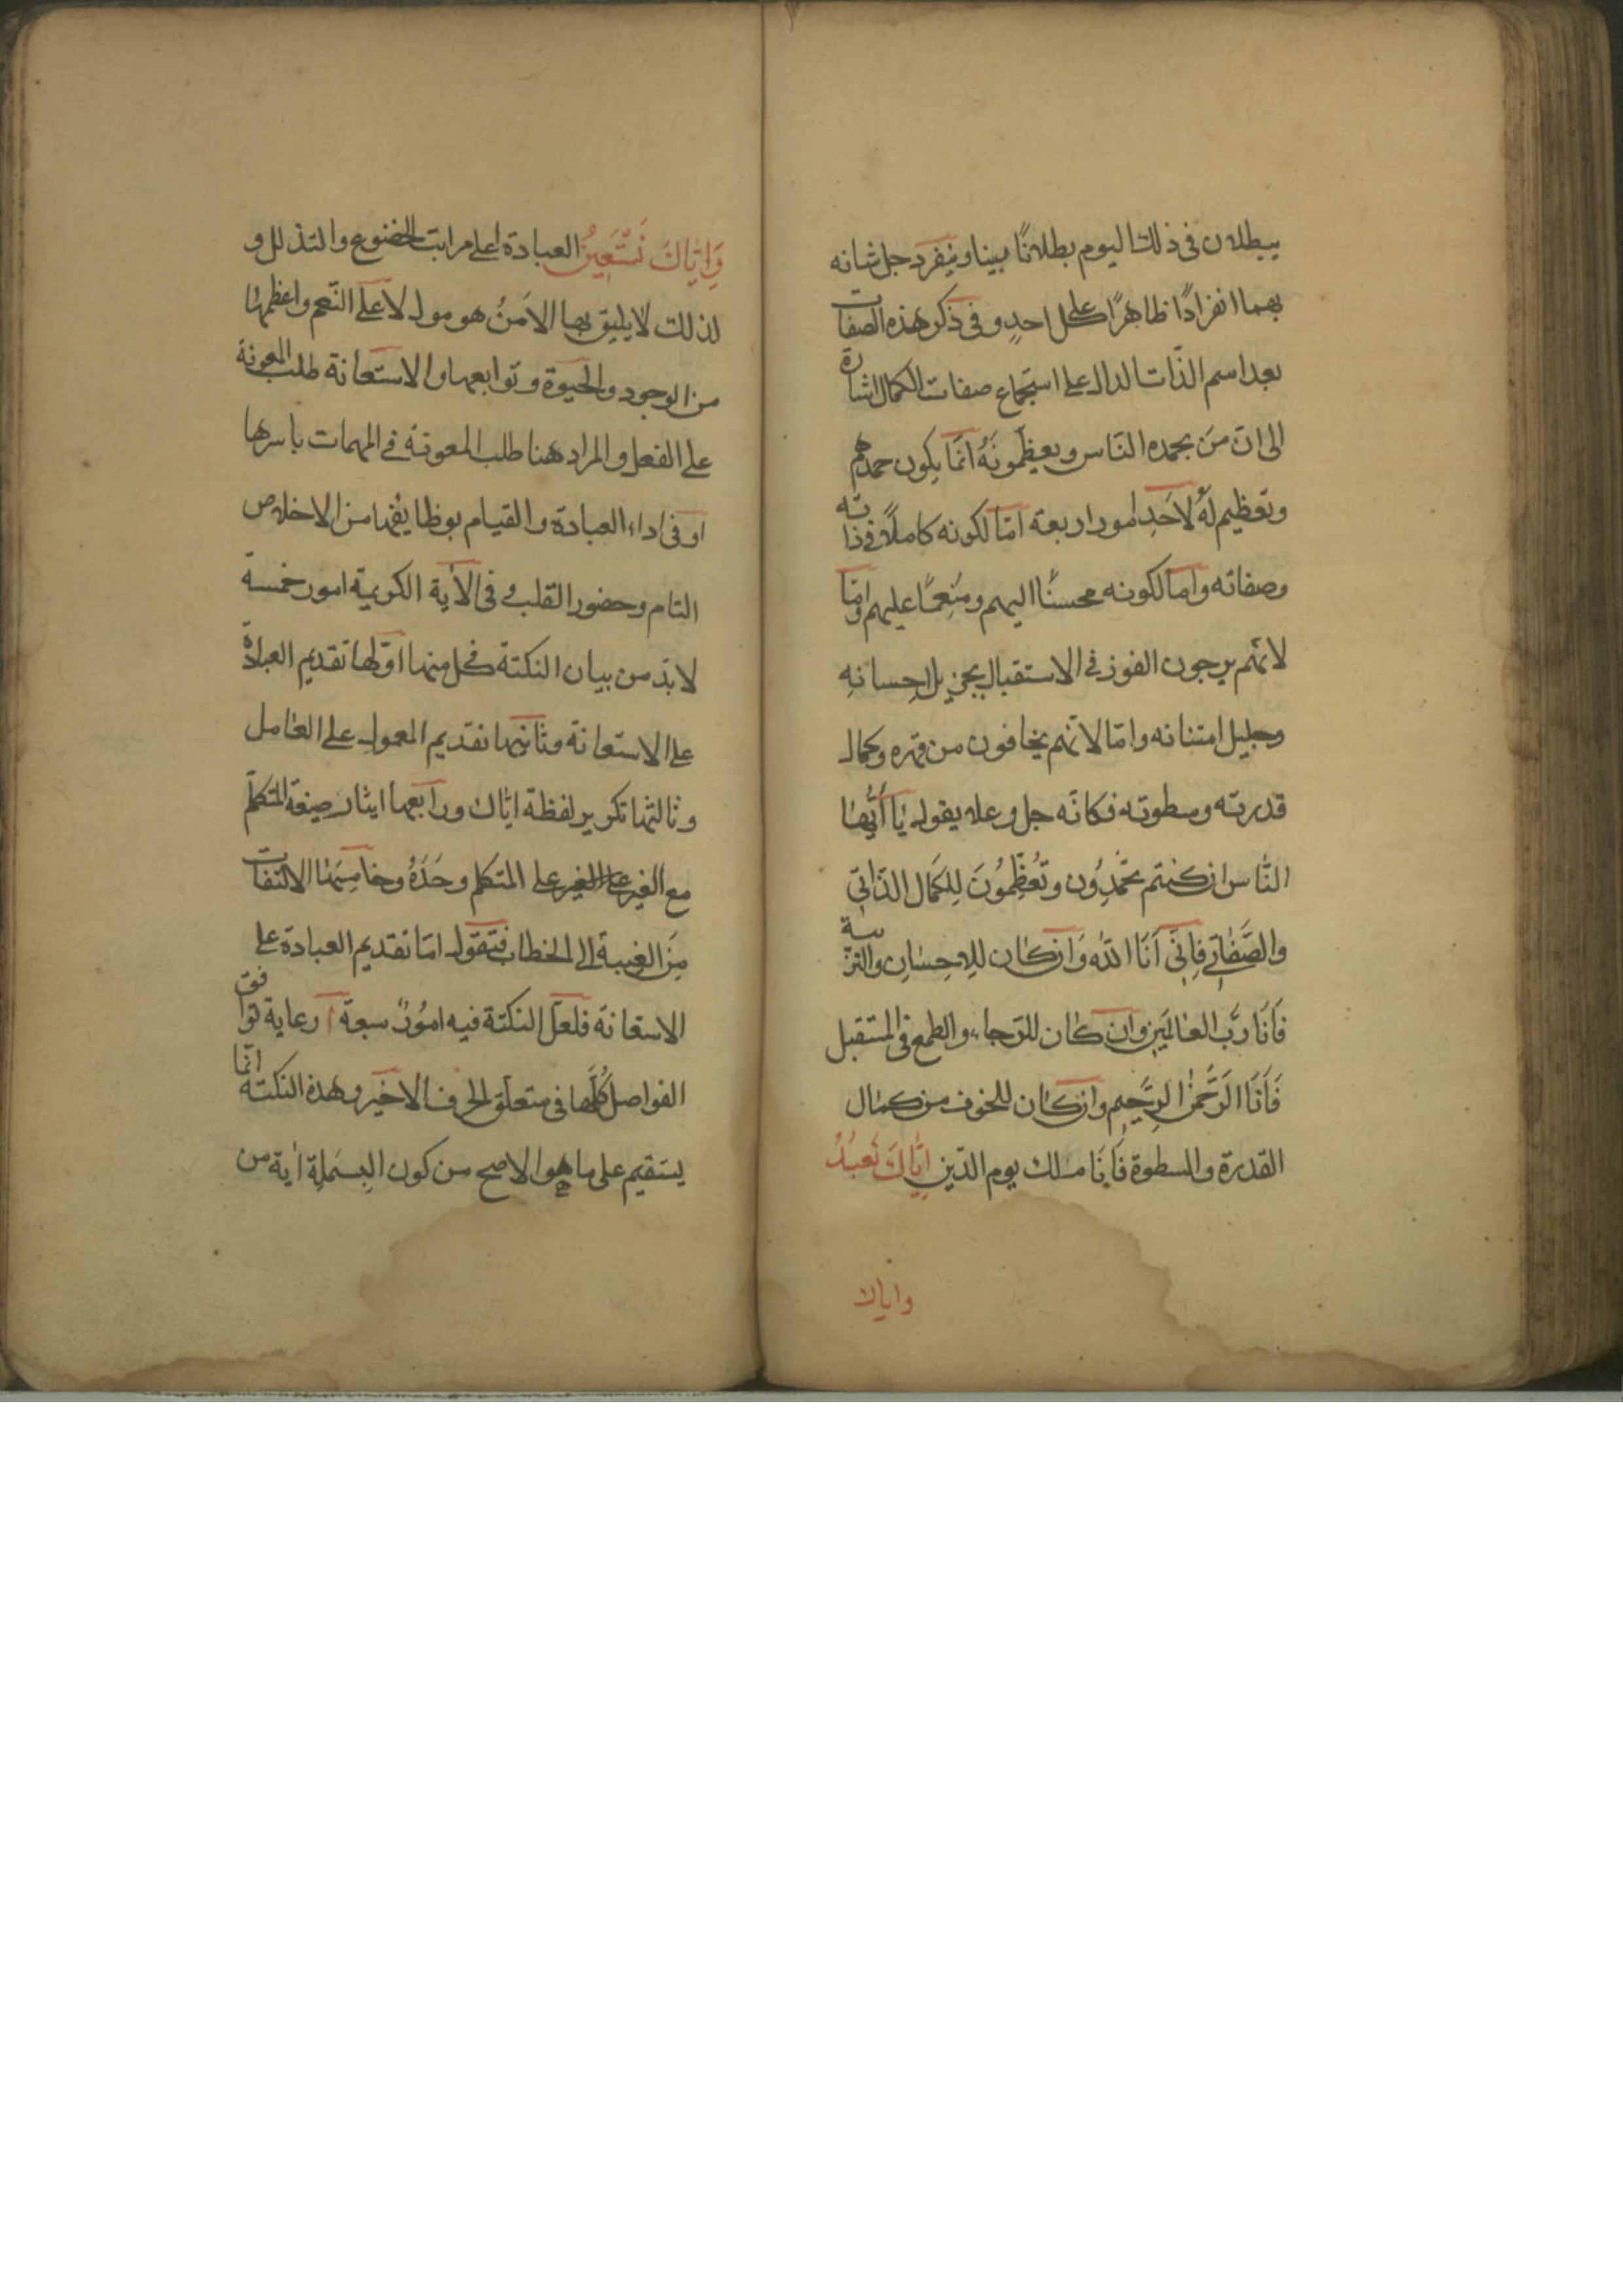 يبطلان فى ذلك اليوم بطلانًا بينا وينفرد جل شانه
بهما انفرادًا ظاهرًا على كل احدٍ و فى ذكر هذه الصفات
بعد اسم الذّات الدال على استجماع صفات الكمال اشارة
الى ان مَن يحمده النّاس ويعظّمونَهُ انمّا يكون حمدهم
وتعظيم لَهُ لاَحَدِ امور اربعة امّا لكونه كاملاً فى ذاته
وصفاته واما لكونه محسنًا اليهم ومُنعِمًا عليهم وامّا
لانّهم يرجون الفوز فى الاستقبال بجزيل احِسانهِ
وجليل امتنانه وامّا لانّهم يخافون من قهره وكمال
قدرته وسطوته فكانّه جل وعلا يقول يٰا اَيُّهٰا
النّٰاس ان كنتم تحَمِدُون وتُعَظِّمُونَ لِلكَمٰال الذّاتىّ
والصِّفٰاتى فاِنّى اَنَا اللّٰه وَان كان للاِحِسٰانِ والتربية
فاَنَا رَبّ العٰالمَين وان كٰان للرّجاء والطمع فى المستقبل
فَاَنَا الرَّحَمٰن الرِحَيِم وان كان للخوف من كمٰال
القدرة والسطوة فَاَنَا مٰلك يوم الدّين اِيّٰاكَ نَعبُدُ
واياك
وَاِيّٰاكَ نَسْتَعِينُ العبادة اعلى مراتب الخضوع والتذلل و
لذلك لا يليق بها الا مَنُ هو مول لاعلى النّعم واعظمها
من الوجود والحيوة وتوابعهما والاستعانة طلب المعونة
على الفعل والمراد هنا طلب المعونة فى المهمات باسرها
او فى اداء العبادة والقيام بوظايفها من الاخلاص
التام وحضور القلب و فى الآية الكريمة امور خمسة
لا بدّ من بيان النكتة فى كل منها اوّلها تقديم العبادة
على الاستعانة وثانيها تقديم المعمول على العٰامل
وثالثها تكرير لفظة ايّاك ورابعها ايثار صيغة المتكلّم
مع الغير على الغير على المتكلم وحَدَهُ وخامسِهَا الالتفات
مِنَ الغيبة الى الخطاب فنقول امّا تقديم العبادة على
الاستعانة فلعلّ النكتة فيه امُوُر سبعة آ رعاية توافق
الفواصل كُلّها فى متعلّق الحرف الاخير وهذه النكتة انّما
يستقيم على ما هو الاصح من كون البِسَملِة اٰية من